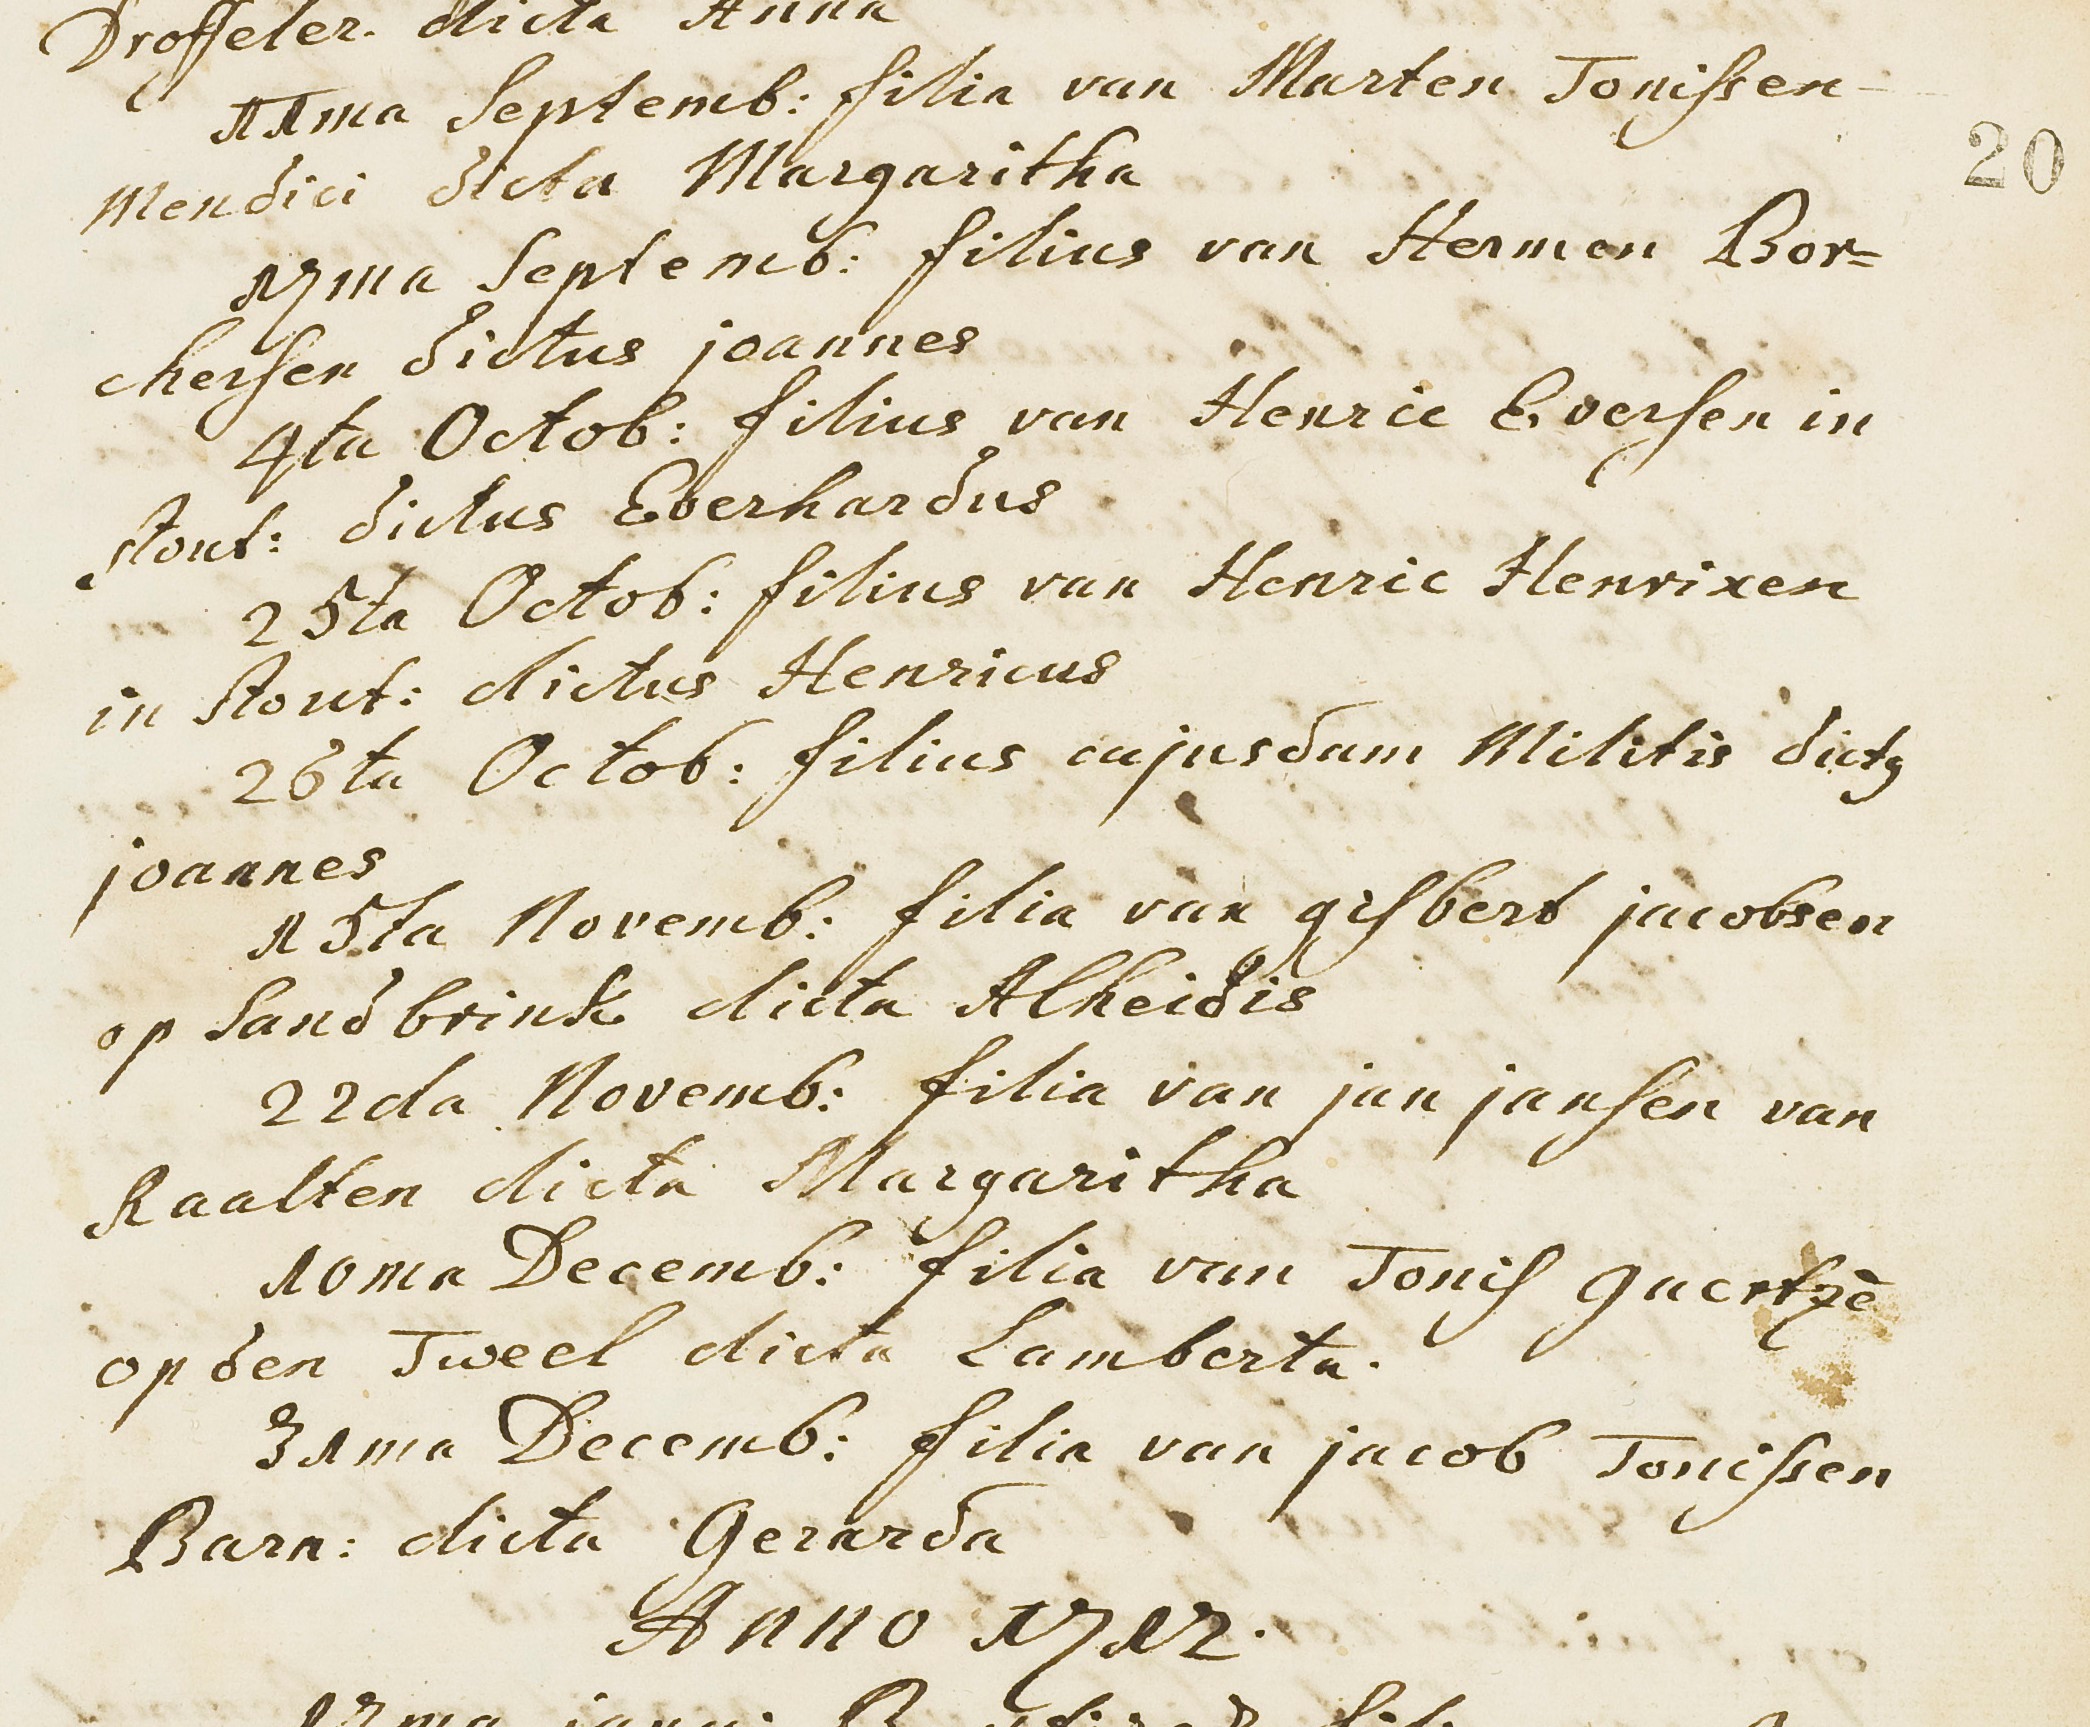 Droffeler. dicta Anna
11ma Septemb: filia van Marten Tonissen
20
mendici dicta Margaritha
17ma Septemb: filius van Hermen Bor=
chersen dictus joannes
4ta Octob: filius van Henric Eversen in
stout: dictus Everhardus
25ta Octob: filius van Henric Henrixen
in stout: dictus Henricus
26ta Octob: filius cujusdam Militis dictq
joannes
15ta Novemb: filia van gisbert jacobsen
op Sandbrink dicta Alheidis
22da Novemb: filia van jan jansen van
Raalten dicta Margaritha
10ma Decemb: filia van Tonis
op den Tweel dicta Lamberta.
31ma Decemb: filia van jacob Tonissen
Barn: dicta Gerarda
Anno 1712.